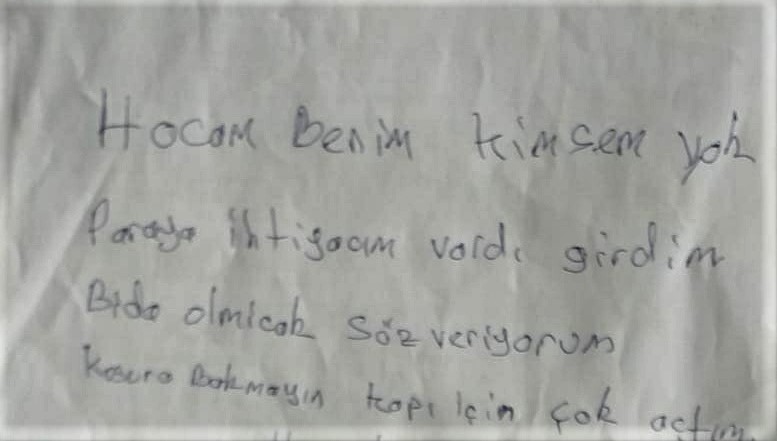 Hocam Benim kimsem yok
Paraya ihtiyacım vardı girdim
Bida olmicak söz veriyorum
kusura Bakmayın kapı için çok açtım